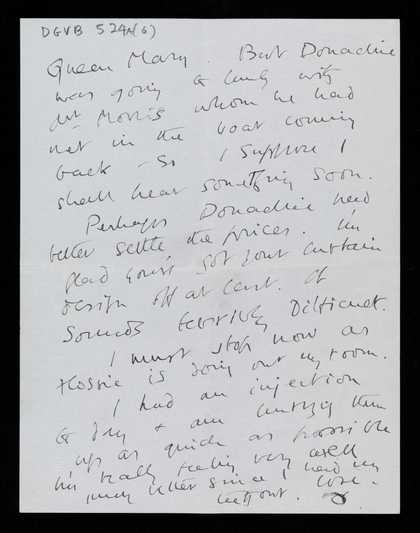 DGVB 524A(6)
Queen Mary. But Donachie
was going to lunch with
Mr Morris whom he had
met in the boat coming
back - So I suppose I
shall hear something soon.
Perhaps Donachie had
better settle the prices. I'm
glad you've got your curtain
design off at last. It
sounds terribly Difficult.
I must stop now as
Flossie is doing out my room.
I had an injection
to day & am
up as quick as possible
really feeling very well
much better since I had my
out.